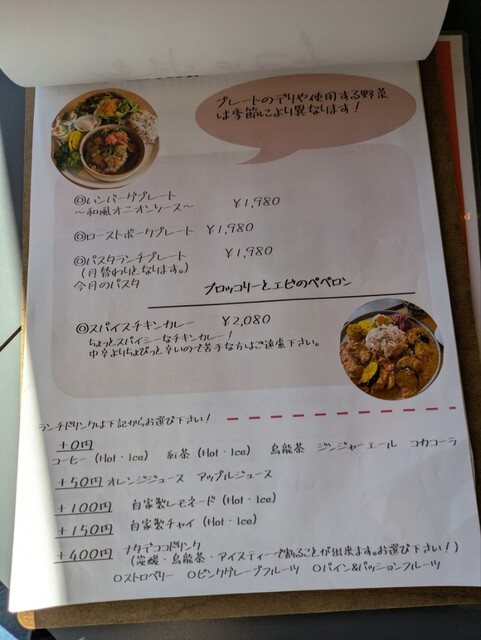 プレートのデリや使用する野菜
は季節により異なります！
◎ハンバーグプレート ¥1,980
～和風オニオンソース～
◎ローストポークプレート ¥1,980
◎パスタランチプレート ¥1,980
（月替わりとなります。）
今月のパスタ ブロッコリーとエビのペペロン
◎スパイスチキンカレー ¥2,080
ちょっとスパイシーなチキンカレー！
中辛よりちょぴっと辛いので苦手な方はご遠慮下さい。
ランチドリンクは下記からお選び下さい！
+0円
コーヒー（Hot・Ice） 紅茶（Hot・Ice） 烏龍茶 ジンジャーエール コカコーラ
+50円 オレンジジュース アップルジュース
+100円 自家製レモネード（Hot・Ice）
+150円 自家製チャイ（Hot・Ice）
+400円 ナタデココドリンク
（炭酸・烏龍茶・アイスティーで割ることが出来ます。お選び下さい！）
○ストロベリー ○ピンクグレープフルーツ ○パイン&パッションフルーツ